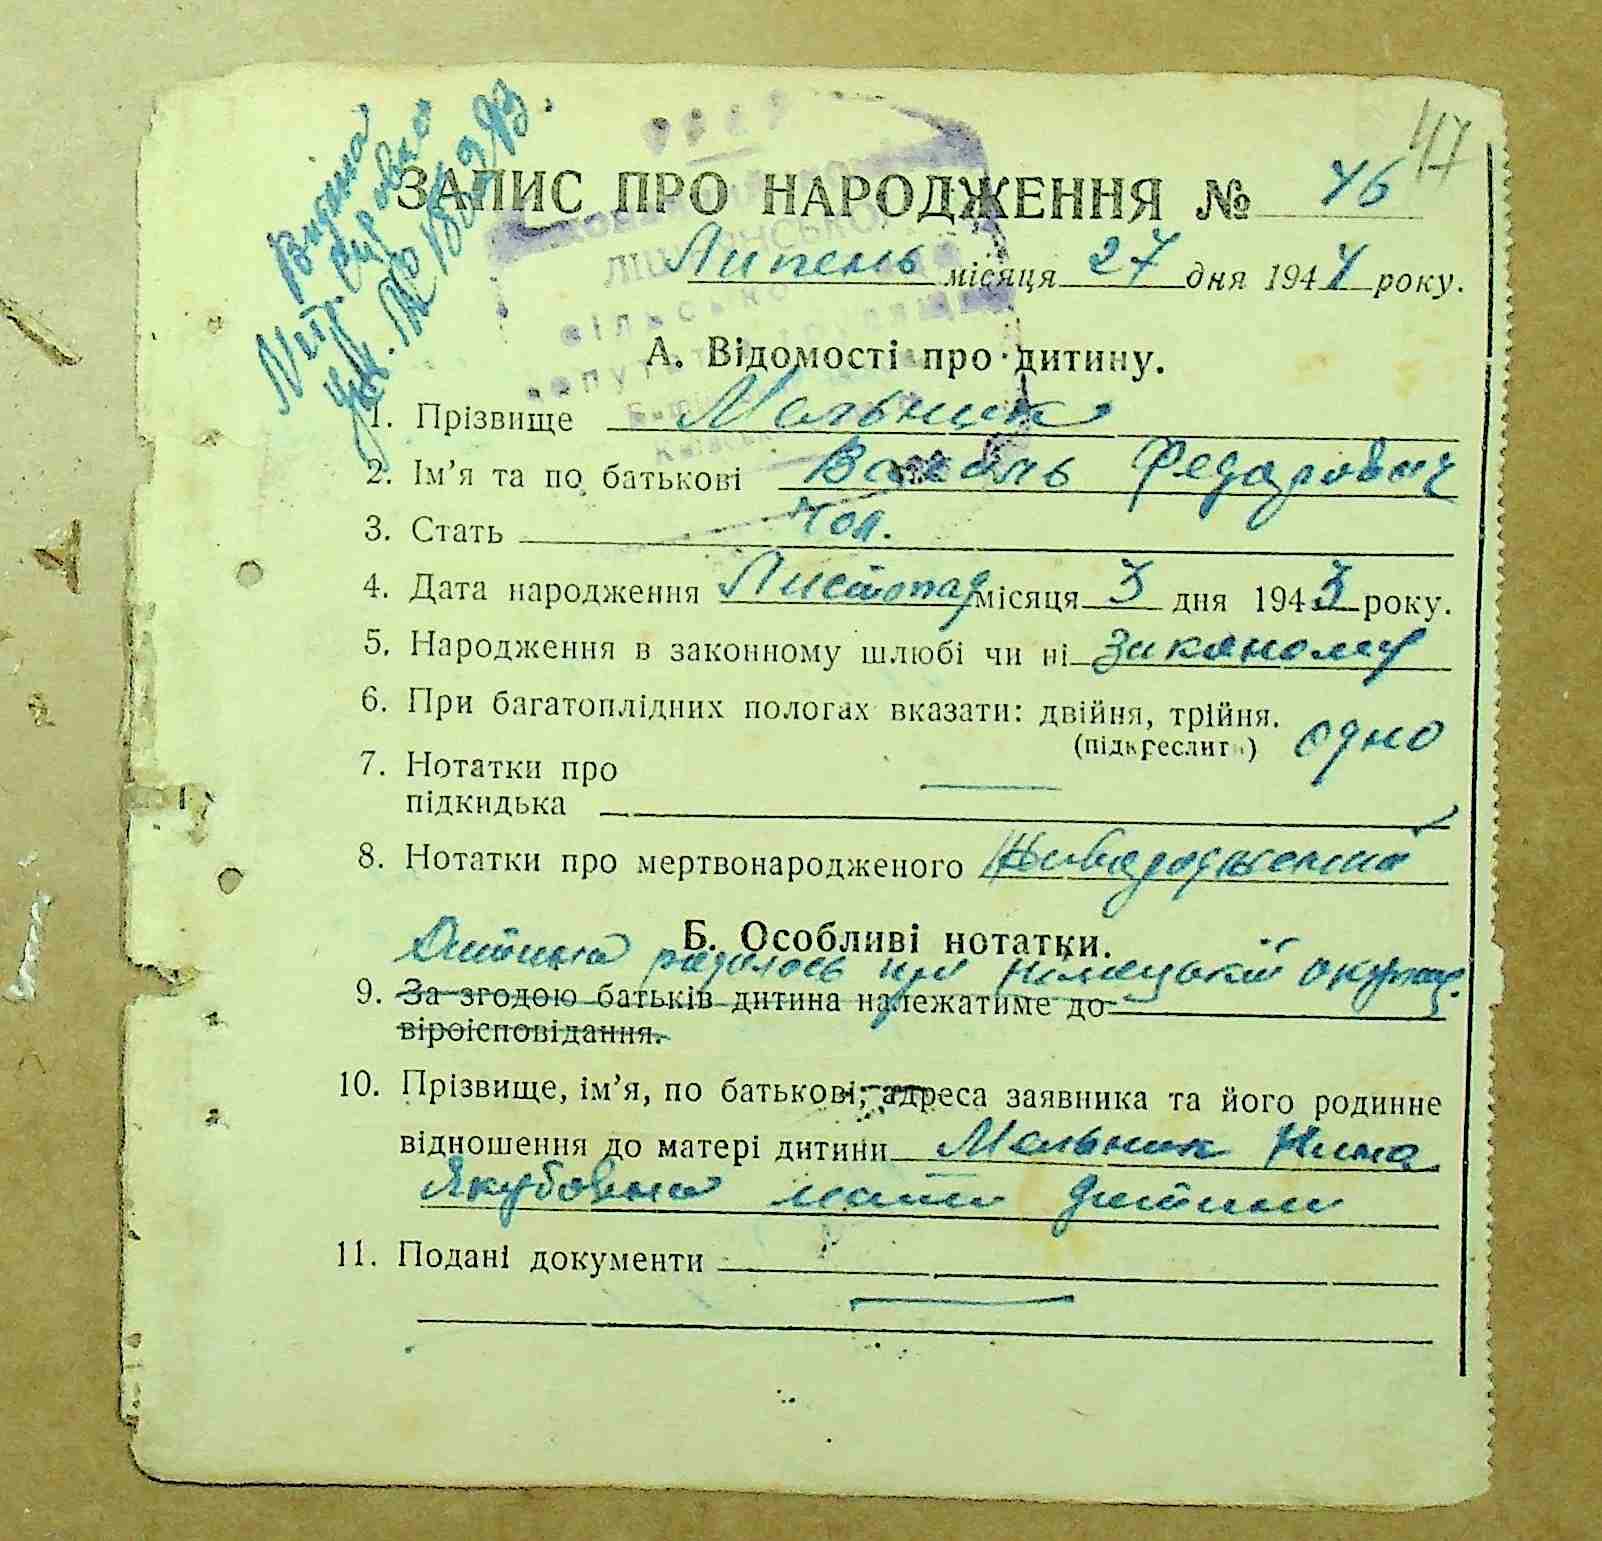 47
ЗАПИС ПРО НАРОДЖЕННЯ № 46
Липень місяця 27 дня 1944 року.
А. Відомості про дитину.
1. Прізвище Мельник
2. Ім'я та по батькові Василь Федарович
3. Стать Чол.
4. Дата народження Листопад місяця 3 дня 1943 року.
5. Народження в законному шлюбі чи ні законому
6. При багатоплідних пологах вказати: двійня, трійня.
(підкреслити) одно
7. Нотатки про
підкидька
8. Нотатки про мертвонародженого Живародженний
Б. Особливі нотатки.
Дитина радилось при німецькій окупац.
9. За згодою батьків дитина належатиме до
віроісповідання.
10. Прізвище, ім'я, по батькові, адреса заявника та його родинне
відношення до матері дитини Мельник Нина
Якубовна мати дитини
11. Подані документи